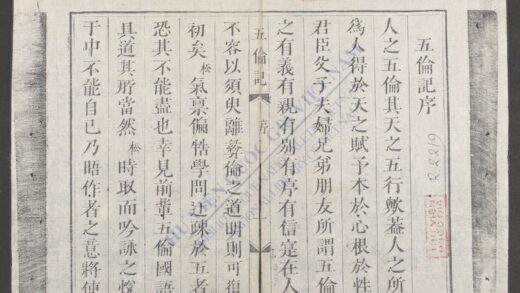 五倫記序
人之五倫其天之五行歟葢人之所
爲人得於天之賦予本於心根於性
君臣父子夫婦兄弟朋友所謂五倫
之有義有親有別有序有信寔在人
五倫記 序
不容以須臾離彜倫之道明則可復
初矣松氣禀偏牿學問迂疎於五者
恐其不能盡也幸見前輩五倫國語
具道其所當然松時取而吟詠之恱
于中不能自已乃晤作者之意將使
THƯ VIỆN QUỐC GIA VIỆT NAM